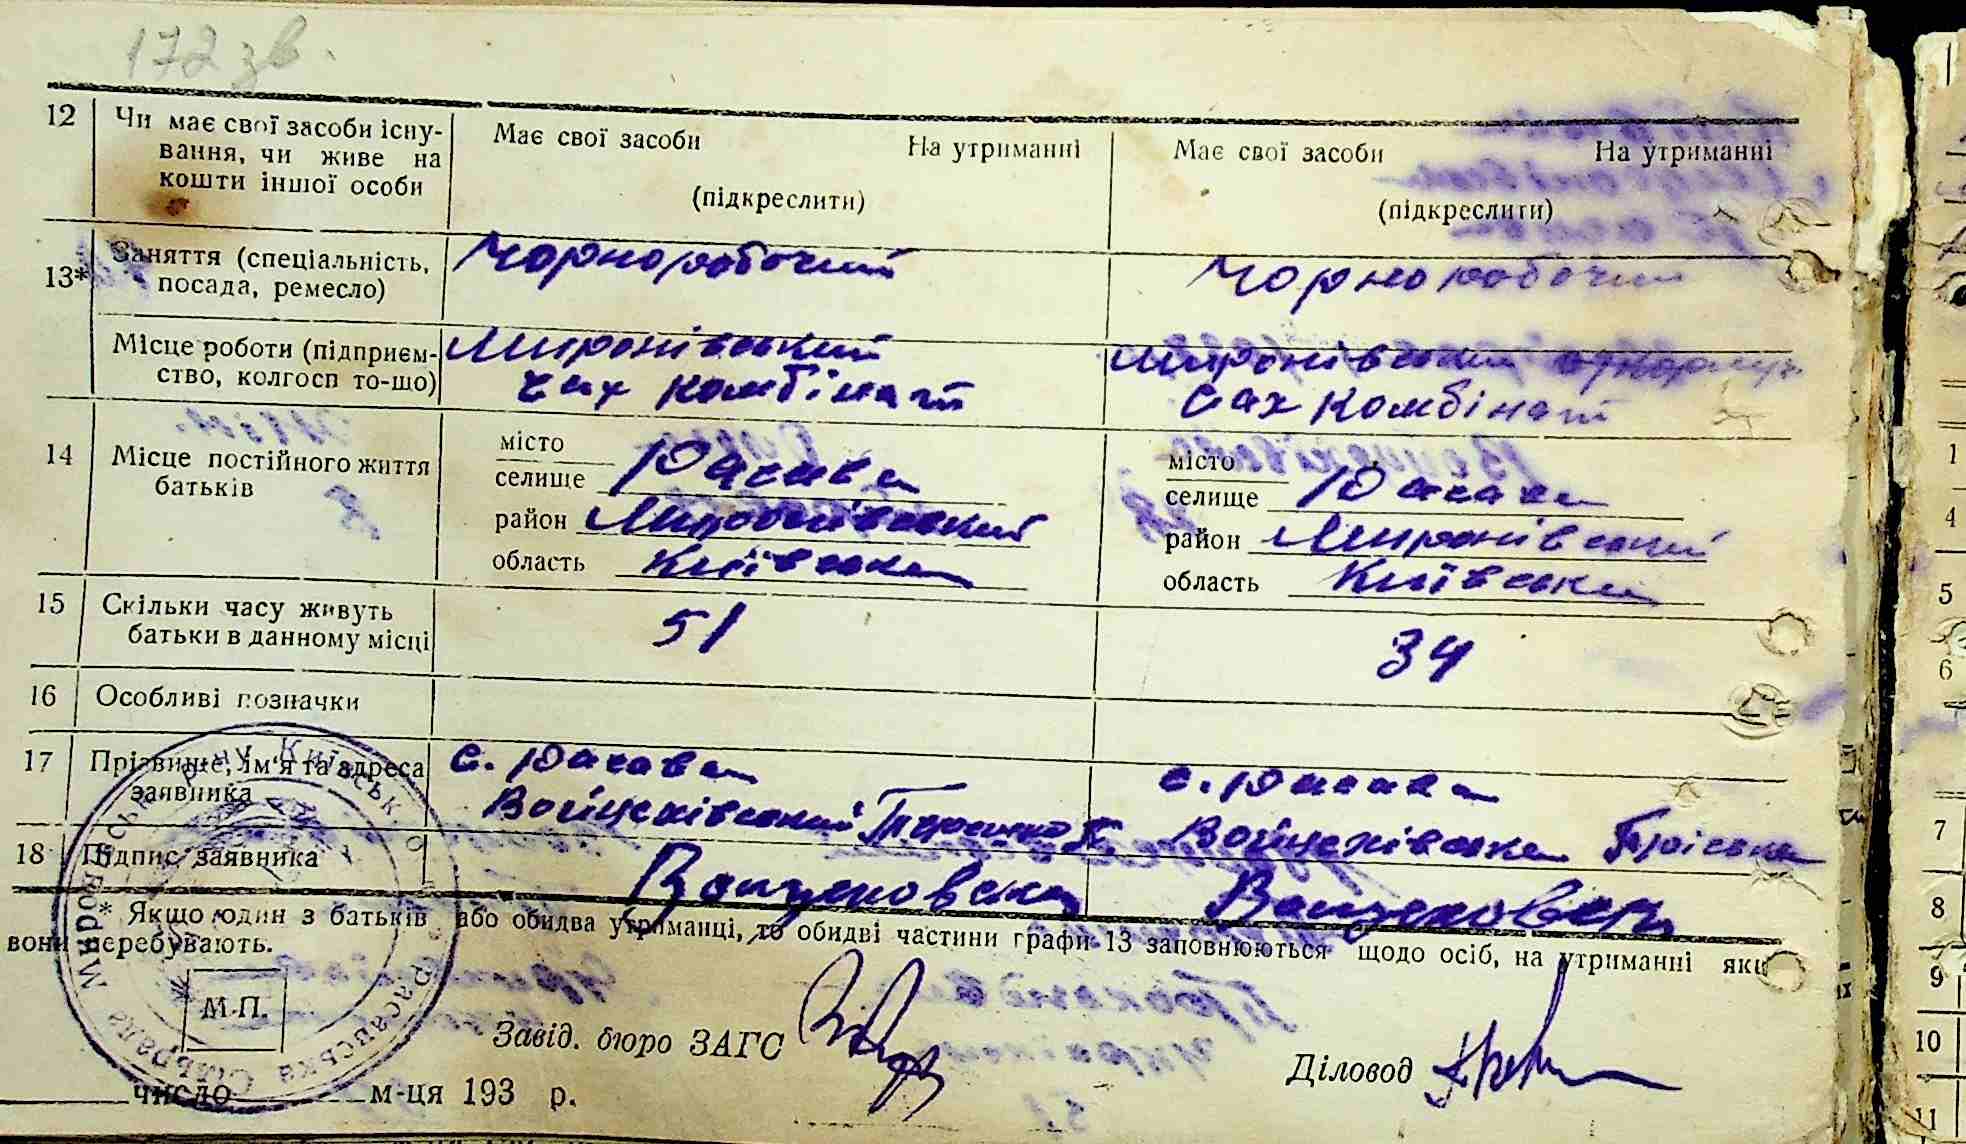 172 зв.
12 Чи має свої засоби існу-
вання, чи живе на
кошти іншої особи
Має свої засоби На утриманні
(підкреслити)
Має свої засоби На утриманні
(підкреслити)
13* Заняття (спеціальність,
посада, ремесло)
Чорноробочий
Чорноробочий
Місце роботи (підприєм-
ство, колгосп то-що)
Миронівський
сах комбінат
Миронівський
Сах Комбінат
14 Місце постійного життя
батьків
місто
селище
район Миронівський
область Київська
місто
селище
район Миронівський
область Київська
15 Скільки часу живуть
батьки в данному місці
51
34
16 Особливі позначки
17 Прізвище, ім'я та адреса
заявника
с.
Войцехівський
с.
Войцехівська
18 Підпис заявника
* Якщо один з батьків або обидва утриманці, то обидві частини графи 13 заповнюються щодо осіб, на утриманні яких
вони перебувають.
М.П.
Завід. бюро ЗАГС
Діловод
число м-ця 193 р.
1
4
5
6
7
8
9
10
11